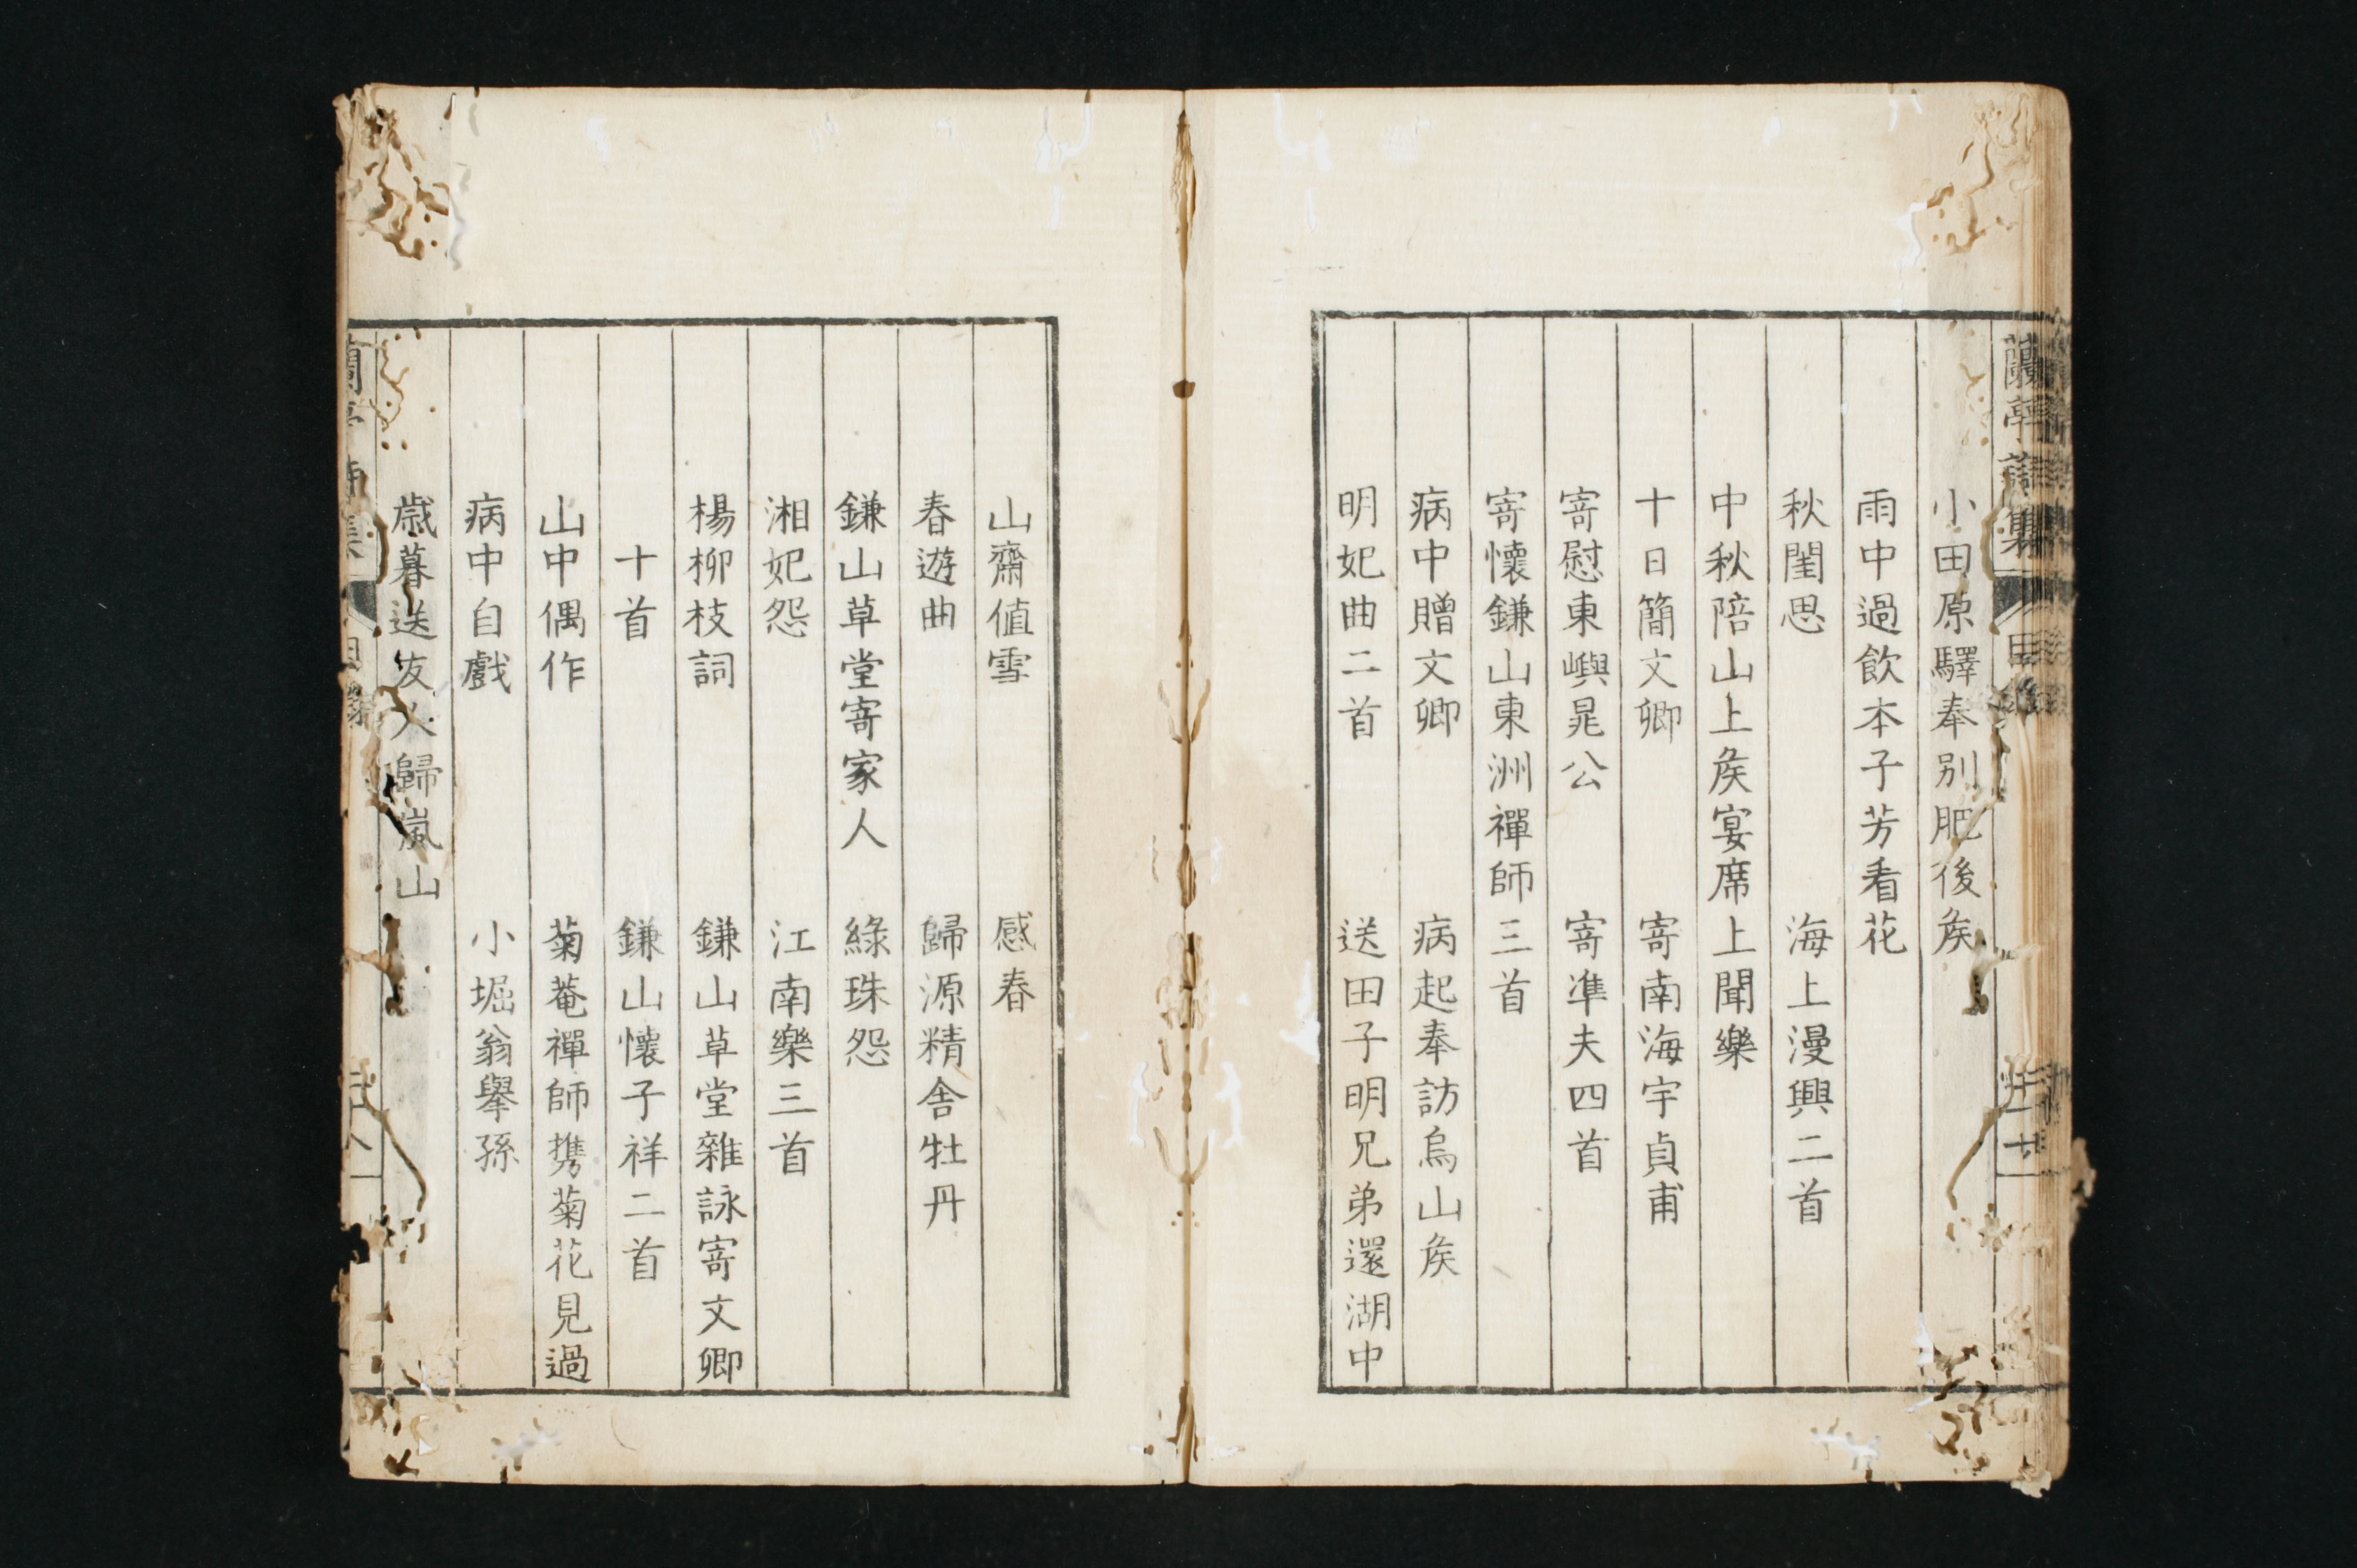 小田原驛奉別肥後矦
雨中過飲本子芳看花
秋閨思　海上漫興二首
中秋陪山上矦宴席上聞樂
十日簡文卿　寄南海宇貞甫
寄慰東嶼晁公　寄準夫四首
寄懷鎌山東洲禪師三首
病中贈文卿　病起奉訪烏山矦
明妃曲二首　送田子明兄弟還湖中
山齋値雪　感春
春遊曲　歸源精舎牡丹
鎌山草堂寄家人　綠珠怨
湘妃怨　江南樂三首
楊柳枝詞　鎌山草堂雜詠寄文卿
十首　鎌山懷子祥二首
山中偶作　菊菴禪師携菊花見過
病中自戲　小堀翁擧孫
歳暮送友人歸嵐山